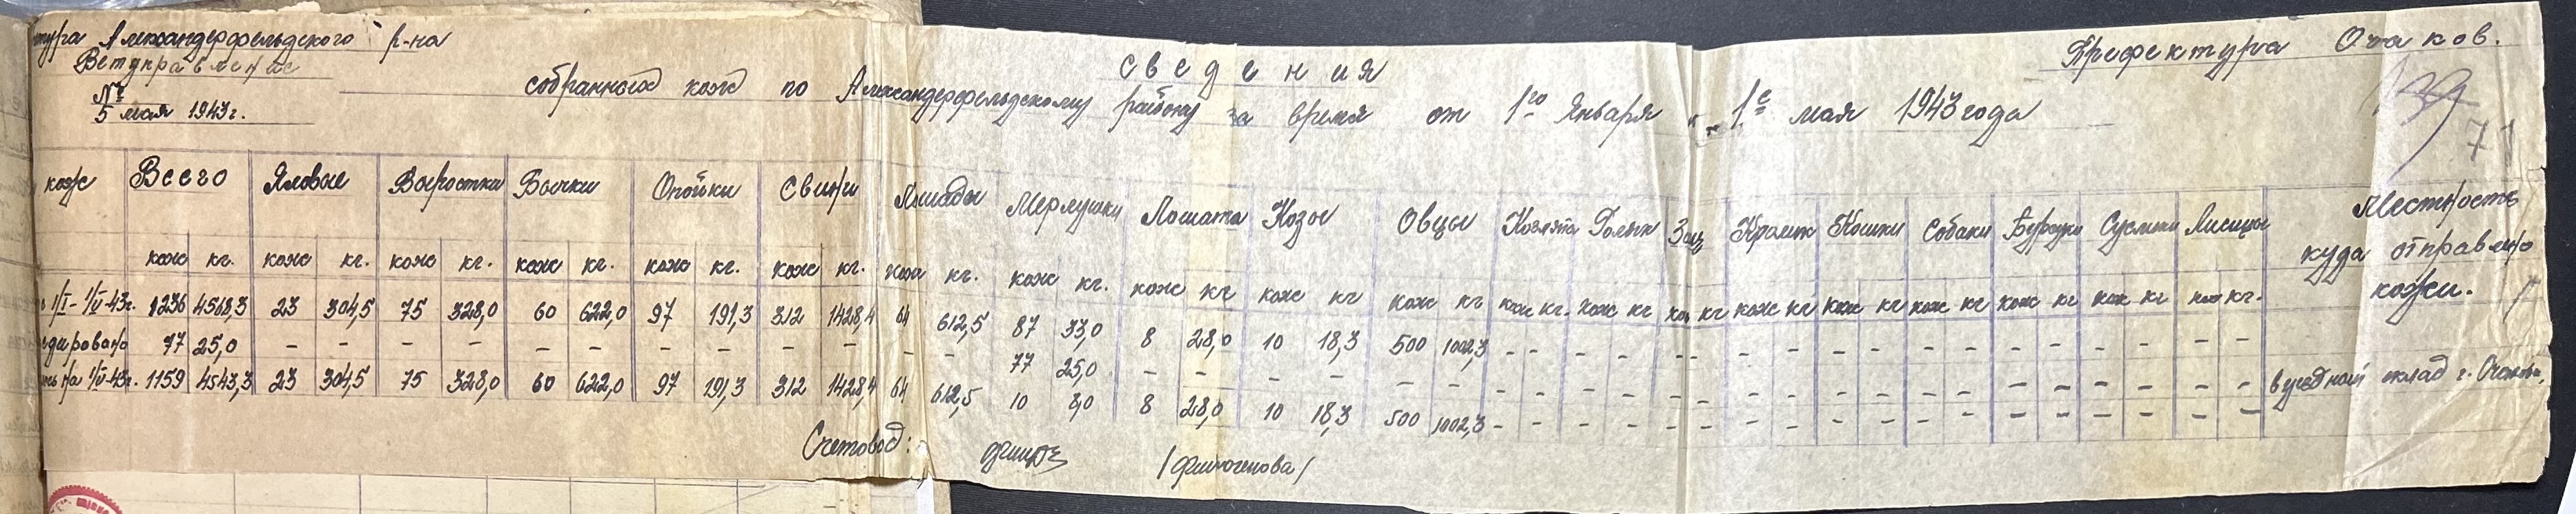 тура Александерфельдского р-на
Ветуправление
№
5 мая 1943 г.
Префектура Очаков.
39
71
Сведения
собранных кож по Александерфельдскому району за время от 1го Января 1е мая 1943 года
кож Всего Яловые Выростки Бычки Опойки Свиньи Лошади Мерлушки Лошата Козы Овцы Козлята Голяк Заяц Кролик Кошки Собаки Суслики Лисицы Местность куда отправлено кожи.
кож кг. кож кг. кож кг. кож кг. кож кг. кож кг. кож кг. кож кг. кож кг кож кг кож кг кож кг. кож кг кож кг кож кг кож кг кож кг кож кг кож кг кож кг.
1/I - 1/V-43г. 1236 4568,3 23 304,5 75 328,0 60 622,0 97 191,3 312 1428,4 64 612,5 87 33,0 8 28,0 10 18,3 500 1002,3 - - - - - - - - - - - - - - - - - -
дировано 77 25,0 - - - - - - - - - - - - 77 25,0 - - - - - - - - - - - - - - - - - - - - - - - - в уездный склад г. Очаков.
на 1/V-43г. 1159 4543,3 23 304,5 75 328,0 60 622,0 97 191,3 312 1428,4 64 612,5 10 8,0 8 28,0 10 18,3 500 1002,3 - - - - - - - - - - - - - - - - - -
Счетовод: